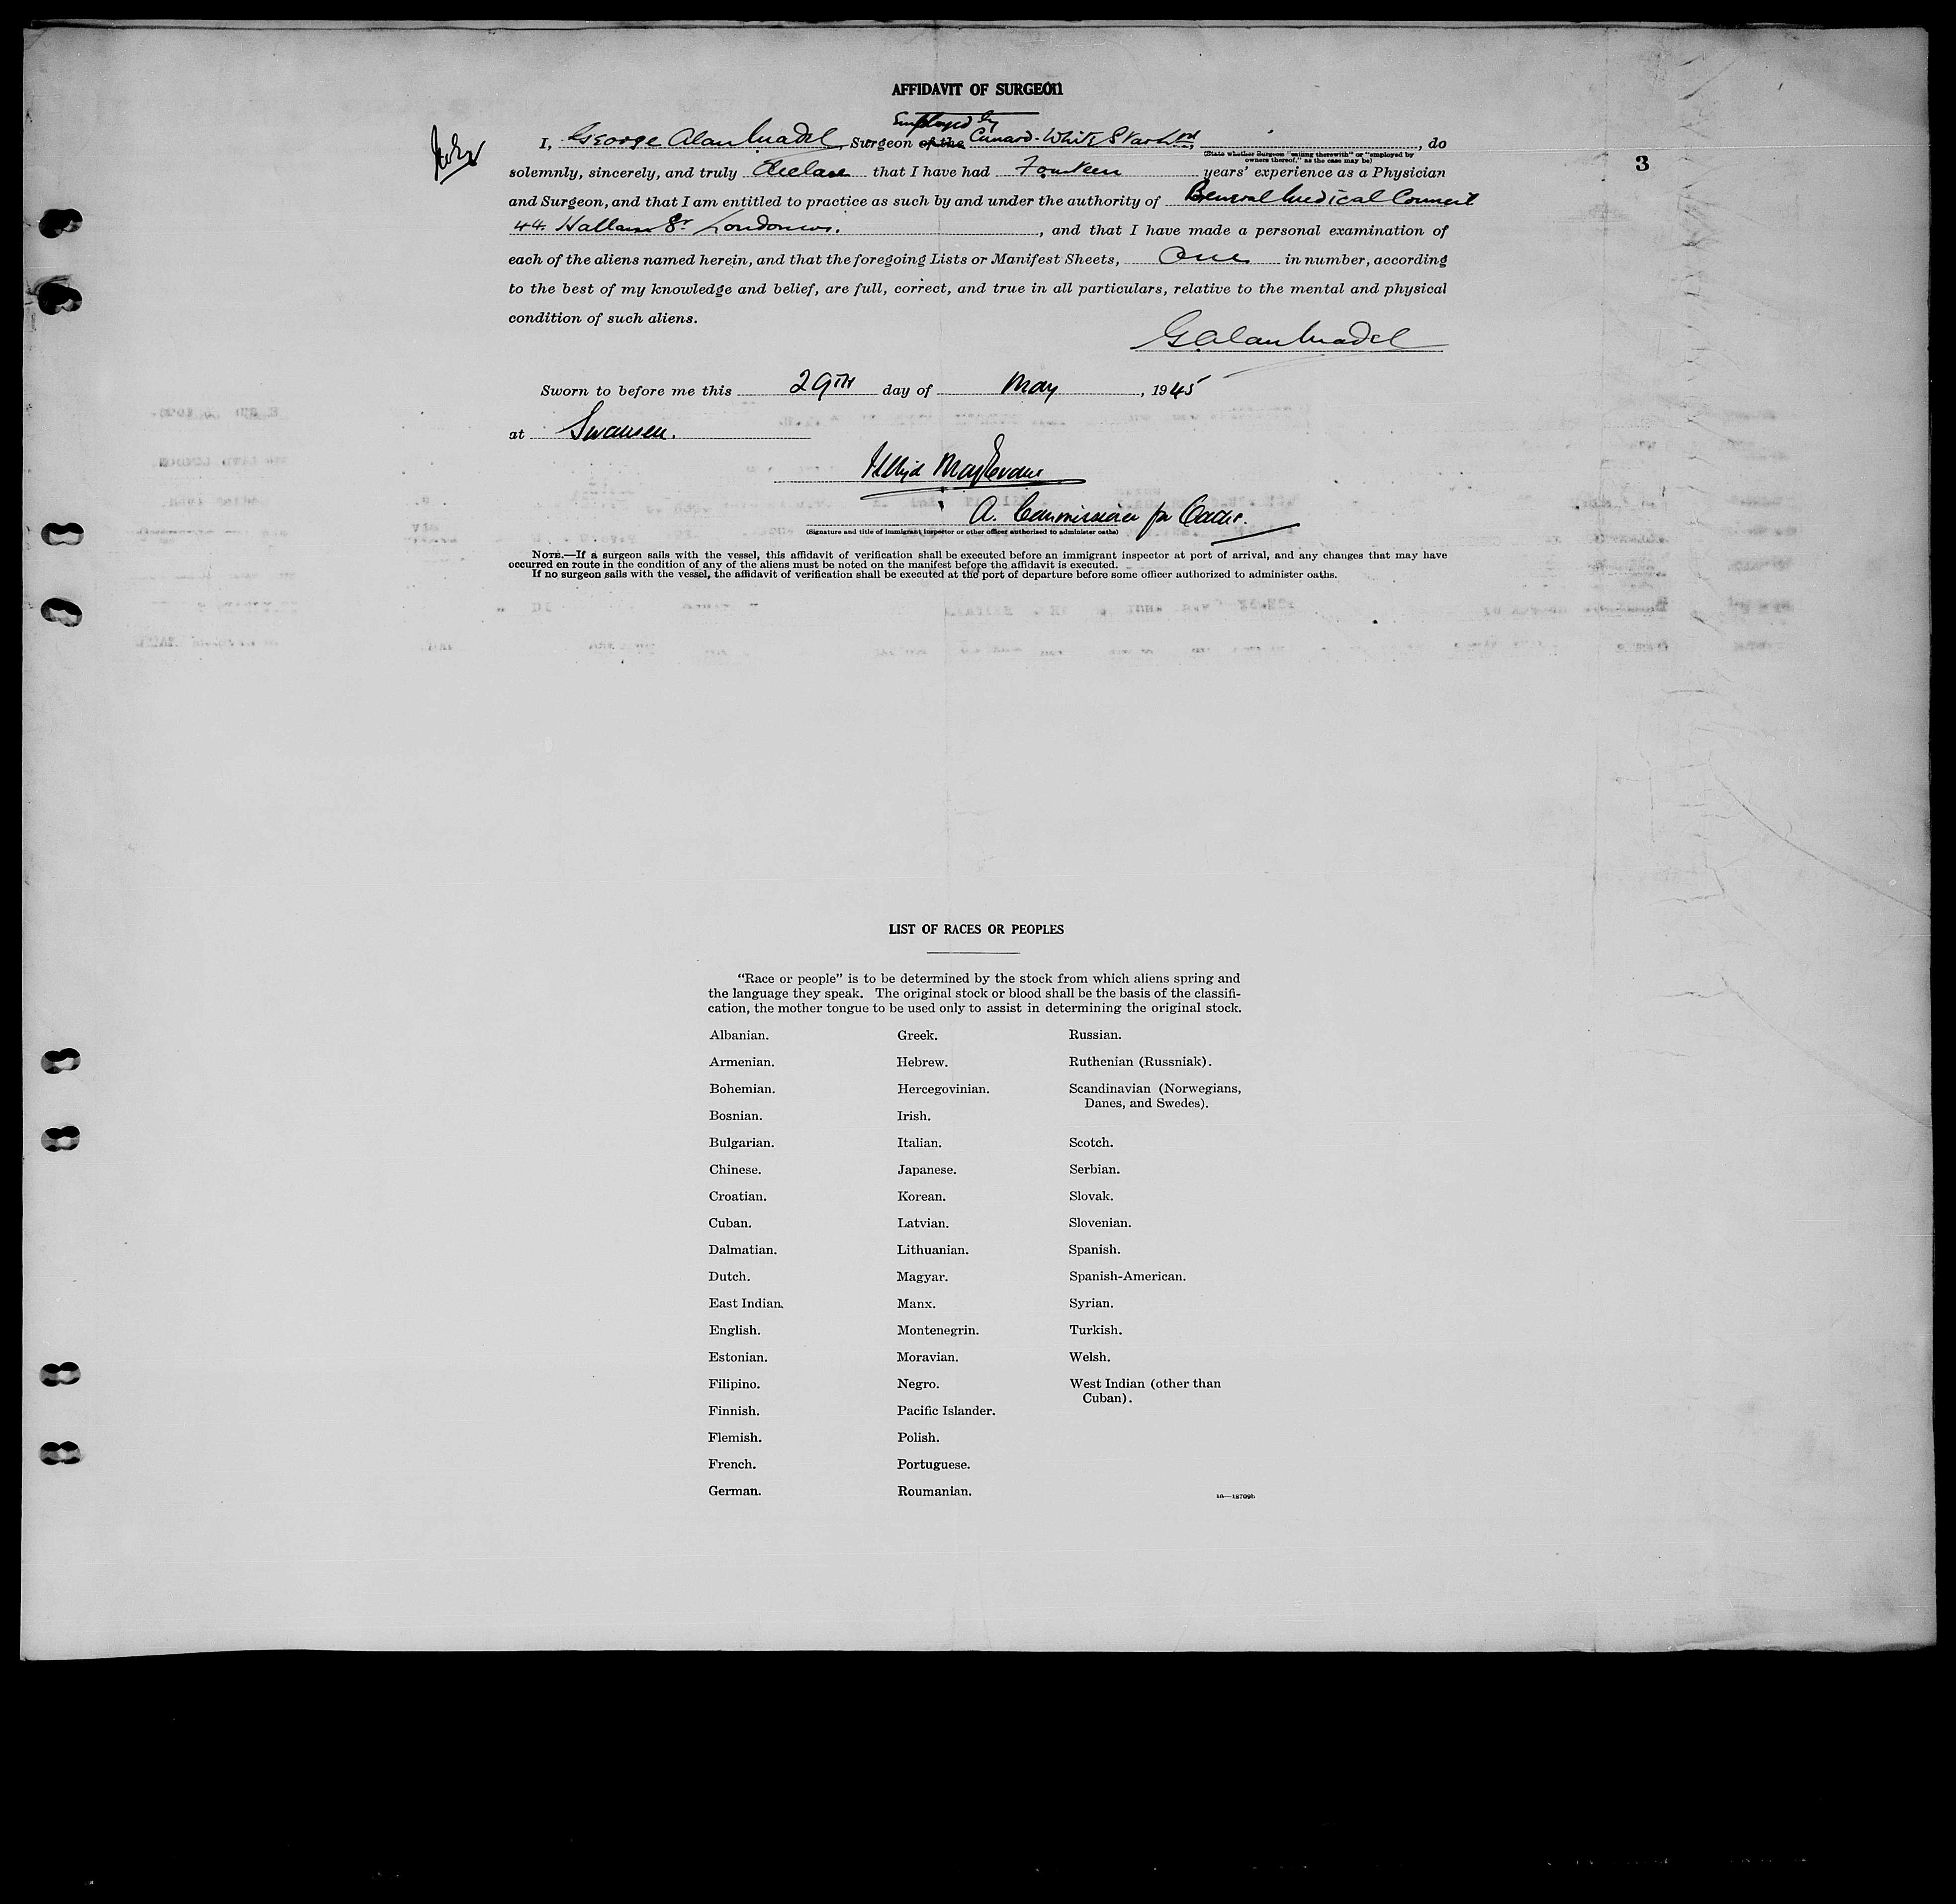 AFFIDAVIT OF SURGEON
Employed by
I, George Alan Madel, Surgeon of the Cunard-White Star Ltd, , do
(State whether Surgeon "sailing therewith" or "employed by
owners thereof," as the case may be)
3
solemnly, sincerely, and truly declare that I have had Fourteen years' experience as a Physician
and Surgeon, and that I am entitled to practice as such by and under the authority of General Medical Council
44. Hallam St. London , and that I have made a personal examination of
each of the aliens named herein, and that the foregoing Lists or Manifest Sheets, One in number, according
to the best of my knowledge and belief, are full, correct, and true in all particulars, relative to the mental and physical
condition of such aliens.
G Alan Madel
Sworn to before me this 29TH day of May, 1945
at Swansea.
Evans
A. Commissioner for Oaths.
(Signature and title of immigrant inspector or other officer authorized to administer oaths)
NOTE.—If a surgeon sails with the vessel, this affidavit of verification shall be executed before an immigrant inspector at port of arrival, and any changes that may have
occurred en route in the condition of any of the aliens must be noted on the manifest before the affidavit is executed.
If no surgeon sails with the vessel, the affidavit of verification shall be executed at the port of departure before some officer authorized to administer oaths.
LIST OF RACES OR PEOPLES
"Race or people" is to be determined by the stock from which aliens spring and
the language they speak. The original stock or blood shall be the basis of the classifi-
cation, the mother tongue to be used only to assist in determining the original stock.
Albanian.
Armenian.
Bohemian.
Bosnian.
Bulgarian.
Chinese.
Croatian.
Cuban.
Dalmatian.
Dutch.
East Indian.
English.
Estonian.
Filipino.
Finnish.
Flemish.
French.
German.
Greek.
Hebrew.
Hercegovinian.
Irish.
Italian.
Japanese.
Korean.
Latvian.
Lithuanian.
Magyar.
Manx.
Montenegrin.
Moravian.
Negro.
Pacific Islander.
Polish.
Portuguese.
Roumanian.
Russian.
Ruthenian (Russniak).
Scandinavian (Norwegians,
Danes, and Swedes).
Scotch.
Serbian.
Slovak.
Slovenian.
Spanish.
Spanish-American.
Syrian.
Turkish.
Welsh.
West Indian (other than
Cuban).